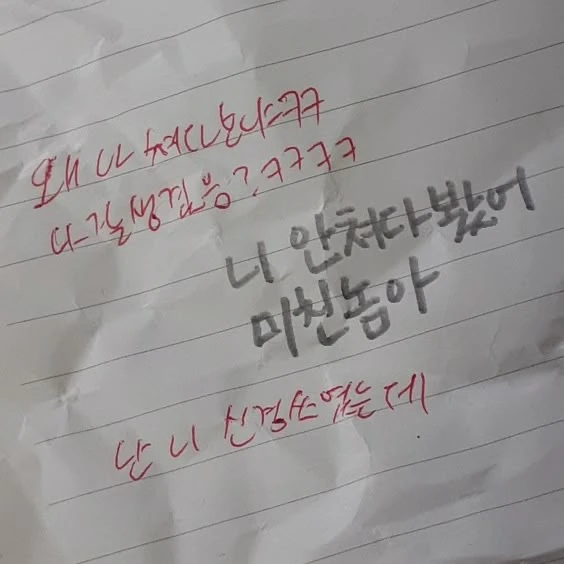 왜 나 쳐다보냐ㅋㅋ
나 잘생겼음?ㅋㅋㅋㅋ
니 안쳐다봤어
미친놈아
난 니 신경쓰였는데